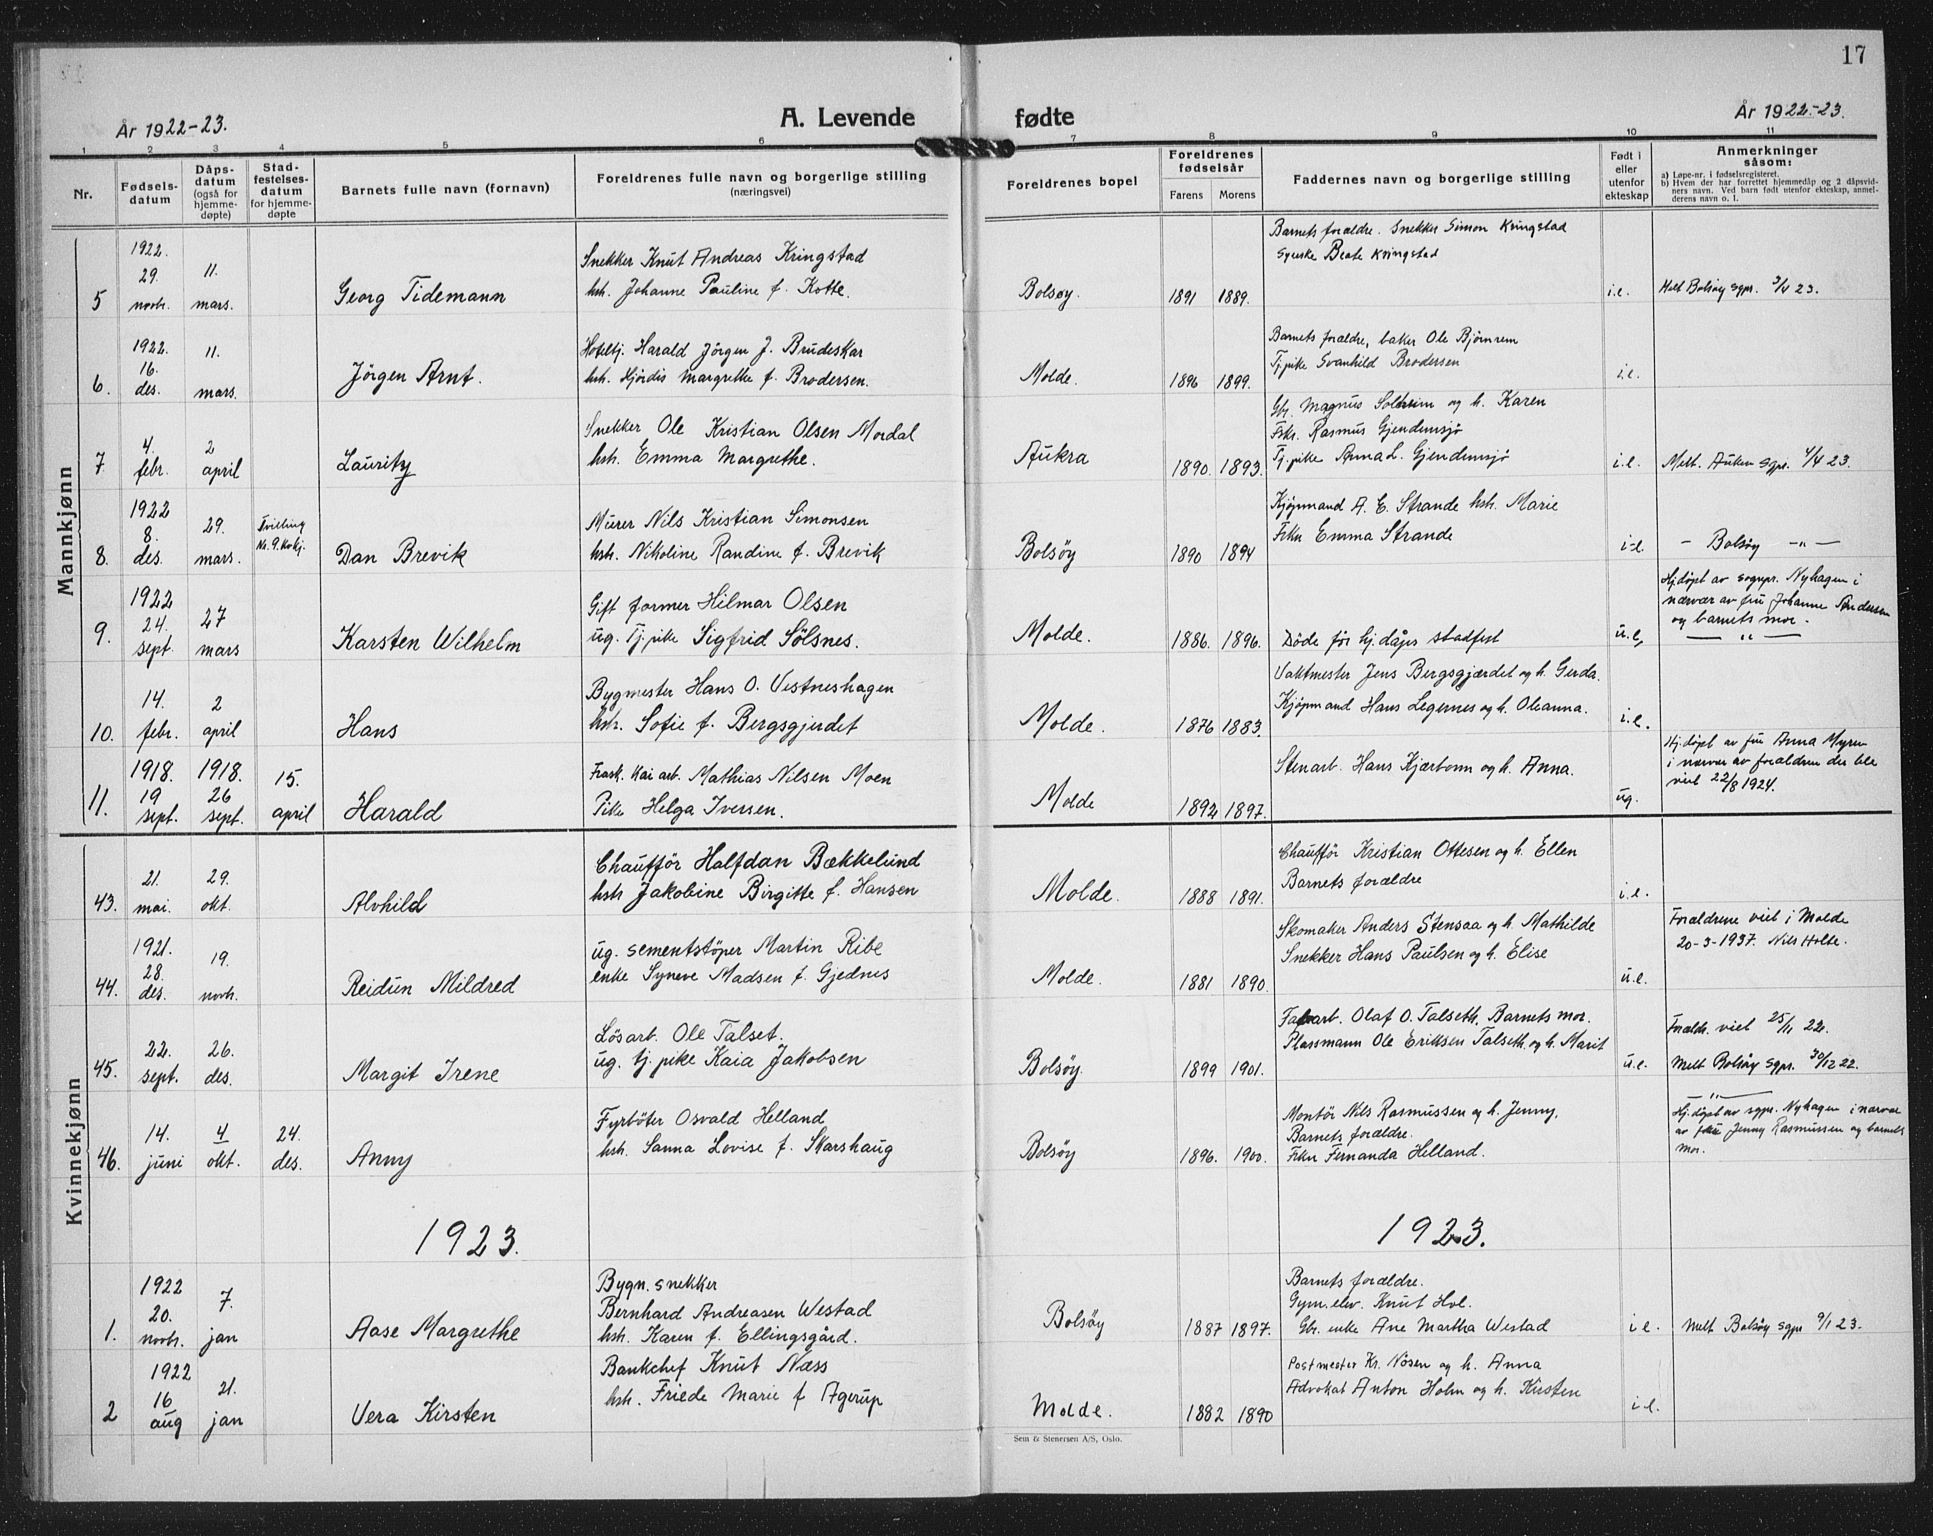 17
År 1922-23.
A. Levende fødte
År 1922-23.
1 2 3 4 5 6 7 8 9 10 11
Nr.
Fødsels-
datum
Dåps-
datum
(også for
hjemme-
døpte)
Stad-
festelses-
datum
for hjemme-
døpte
Barnets fulle navn (fornavn)
Foreldrenes fulle navn og borgerlige stilling
(næringsvei)
Foreldrenes bopel
Foreldrenes
fødselsår
Farens Morens
Faddernes navn og borgerlige stilling
Født i
eller
utenfor
ekteskap
Anmerkninger
såsom:
a) Løpe-nr. i fødselsregisteret.
b) Hvem der har forrettet hjemmedåp og 2 dåpsvid-
ners navn. Ved barn født utenfor ekteskap, anmel-
derens navn o. l.
Mannkjønn
5
1922.
29
novbr.
11.
mars.
Georg Tidemann
Snekker Knut Andreas Kringstad
hstr. Johanne Pauline f. Kotte.
Bolsøy.
1891 1889.
Barnets forældre. Snekker Simon Kringstad
Syerske Beate Kringstad
i.e.
Melt Bolsøy sgpr. 3/4 23.
6.
1922.
16.
des.
11.
mars.
Jörgen Arnt.
Hoteltj. Harald Jörgen J. Brudeskar
hstr. Hjördis Margrethe f. Brodersen.
Molde.
1896 1899.
Barnets forældre, baker Ole Bjørnrem
Tj.pike Svanhild Brodersen
i.e.
7
4.
febr.
2
april
Lauritz
Snekker Ole Kristian Olsen Mordal
hstr. Emma Margrethe.
Aukra
1890. 1893.
Gbr. Magnus Solheim og h. Karen
Fskr. Rasmus Gjendemsjø
Tj.pike Anna L. Gjendemsjø
i.e.
Melt. Auken sgpr. 4/4 23.
8.
1922
8.
des.
29.
mars.
Tvilling
Nr. 9. Kvkj.
Dan Brevik
Murer Nils Kristian Simonsen
hstr. Nikoline Randine f. Brevik
Bolsöy
1890 1894
Kjøpmand A. E. Strande hstr. Marie
Frkn Emma Strande
i-e.
— Bolsøy —„—
9.
1922
24.
sept.
27
mars
Karsten Wilhelm
Gift former Hilmar Olsen
ug. Tj.pike Sigfrid Sölsnes.
Molde.
1886. 1896.
Döde før hj.dåps stadfest
u.e,
Hj.døpt av sognpr. Nyhagen i
nærvær av fru Johanne Andersen
og barnets mor.
— „ —
10.
14.
febr.
2
april
Hans
Bygmester Hans O. Vestneshagen
hstr. Sofie f. Bergsgjerdet
Molde.
1876 1883.
Vaktmester Jens Bergsgjærdet og h. Gerda.
Kjöpmand Hans Legernes og h. Oleanna.
i.e.
11.
1918.
19
sept.
1918.
26
sept.
15.
april
Harald
Frask. Kai arb. Mathias Nilsen Moen
Pike Helga Iversen.
Molde
1892 1897.
Stenarb. Hans Kjærbonn og h. Anna.
ug.
Hj.døpt av fru Anna Myren
i nærvær av forældrene der ble
viet 22/8 1924.
Kvinnekjønn
43.
21.
mai.
29.
okt.
Alvhild
Chauffør Halfdan Bækkelund
hstr Jakobine Birgitte f. Hansen
Molde.
1888 1891.
Chauffør Kristian Ottesen og h. Ellen
Barnets forældre
i.e.
44.
1921.
28.
des.
19.
novbr.
Reidun Mildred
ug. sementstøper Martin Ribe
enke Syneve Madsen f. Gjednes
Molde.
1881 1890.
Skomaker Anders Stensaa og h. Mathilde
Snekker Hans Paulsen og h. Elise
u.e.
Forældrene viet i Molde
20-3-1937. Nils Holte.
45.
22.
sept.
26.
des.
Margit Irene
Løsarb. Ole Talset.
ug. tj. pike Kaia Jakobsen
Bolsøy.
1899 1901.
Olaf O. Talseth, Barnets mor.
Plassmann Ole Eriksen Talseth og h. Marit
u.e.
Foreldr. viet 25/11 22.
Melt Bolsøy sgpr. 30/12 22.
46.
14.
juni
4
okt.
24.
des.
Anny
Fyrbøter Osvald Helland
hstr. Sanna Lovise f. Skarshaug
Bolsöy
1896. 1900.
Montör Nils Rasmussen og h. Jenny.
Barnets forældre.
Frkn Fernanda Helland.
— „ —
Hj.døpt av sgpr. Nyhagen i nærvær
av fru Jenny Rasmussen og barnets
mor.
1923. 1923.
1.
1922
20.
novbr.
7.
jan
Aase Margrethe
Bygn. snekker
Bernhard Andreasen Westad
hstr. Karen f. Ellingsgård.
Bolsöy
1887 1897.
Barnets forældre.
Gym.elev. Knut Hol.
Gbr. enke Ane Martha Westad
i e.
Melt Bolsøy sgpr 9/1 23.
2
1922
16
aug
21.
jan
Vera Kirsten
Bankchef Knut Næss
hstr. Friede Marie f Agerup
Molde.
1882 1890
Postmester Kr. Nösen og h. Anna
Advokat Anton Holm og h. Kirsten
i.e.
Sem & Stenersen A/S, Oslo.